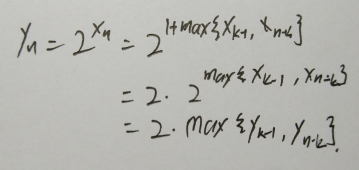 Yn = 2^{Xn} = 2^{1+max{Xk-1, Xn-k}}
= 2 · 2^{max{Xk-1, Xn-k}}
= 2 · max{Yk-1, Yn-k}.